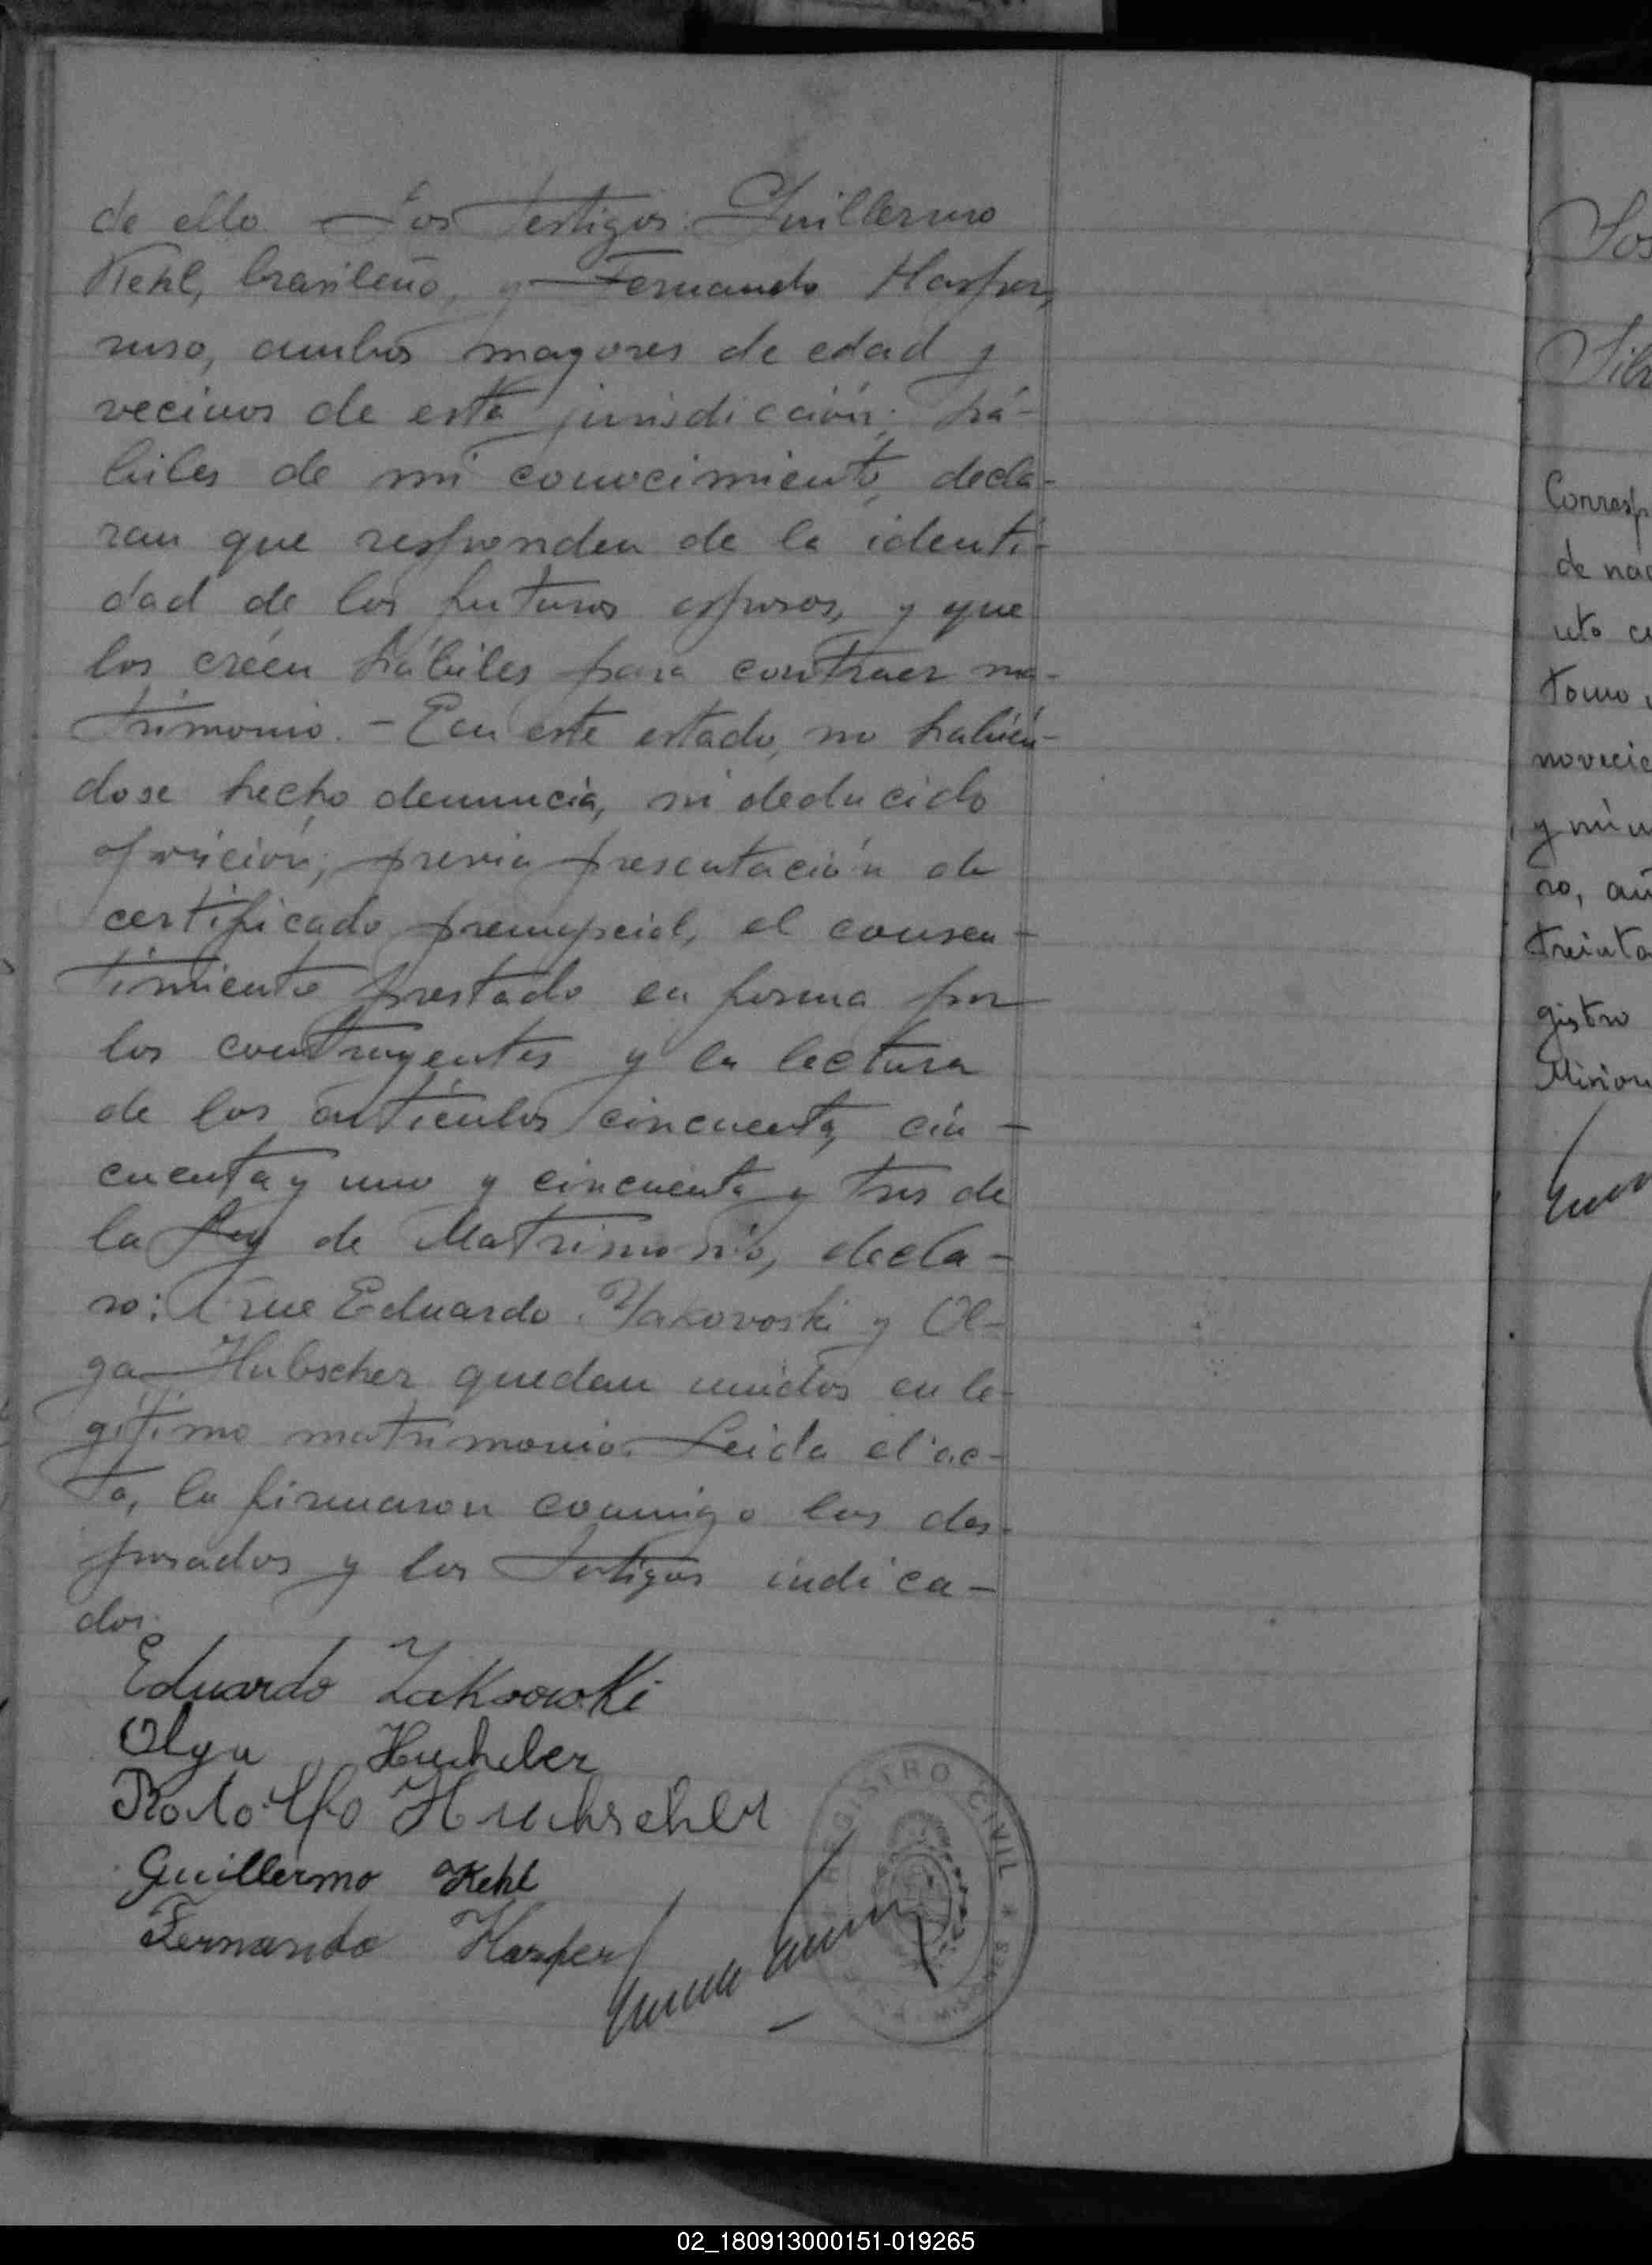 de ello. Los Testigos: Guillermo
Kehl, brasileño, y Fernando Harper,
ruso, ambos mayores de edad y
vecinos de esta jurisdicción; há-
biles de mi conocimiento, decla-
ran que responden de la identi-
dad de los futuros esposos, y que
los créen hábiles para contraer ma-
trimonio. - En este estado, no habién-
dose hecho denuncia, ni deducido
oposición; previa presentación de
certificado prenupcial, el consen-
timiento prestado en forma por
los contrayentes y la lectura
de los artículos cincuenta, cin-
cuenta y uno y cincuenta y tres de
la Ley de Matrimonio, decla-
ro: Que Eduardo Yakovoski y Ol-
ga Hubscher quedan unidos en le-
gítimo matrimonio. Leida el ac-
ta, la firmaron conmigo los des-
posados y los Testigos indica-
dos.
Eduardo Zakowski
Olga
Rodolfo
Guillermo Kehl
Fernando Harper
REGISTRO CIVIL
Corresp
de nac
novecie
ro,
treinta
gistro
Mision
02_180913000151-019265